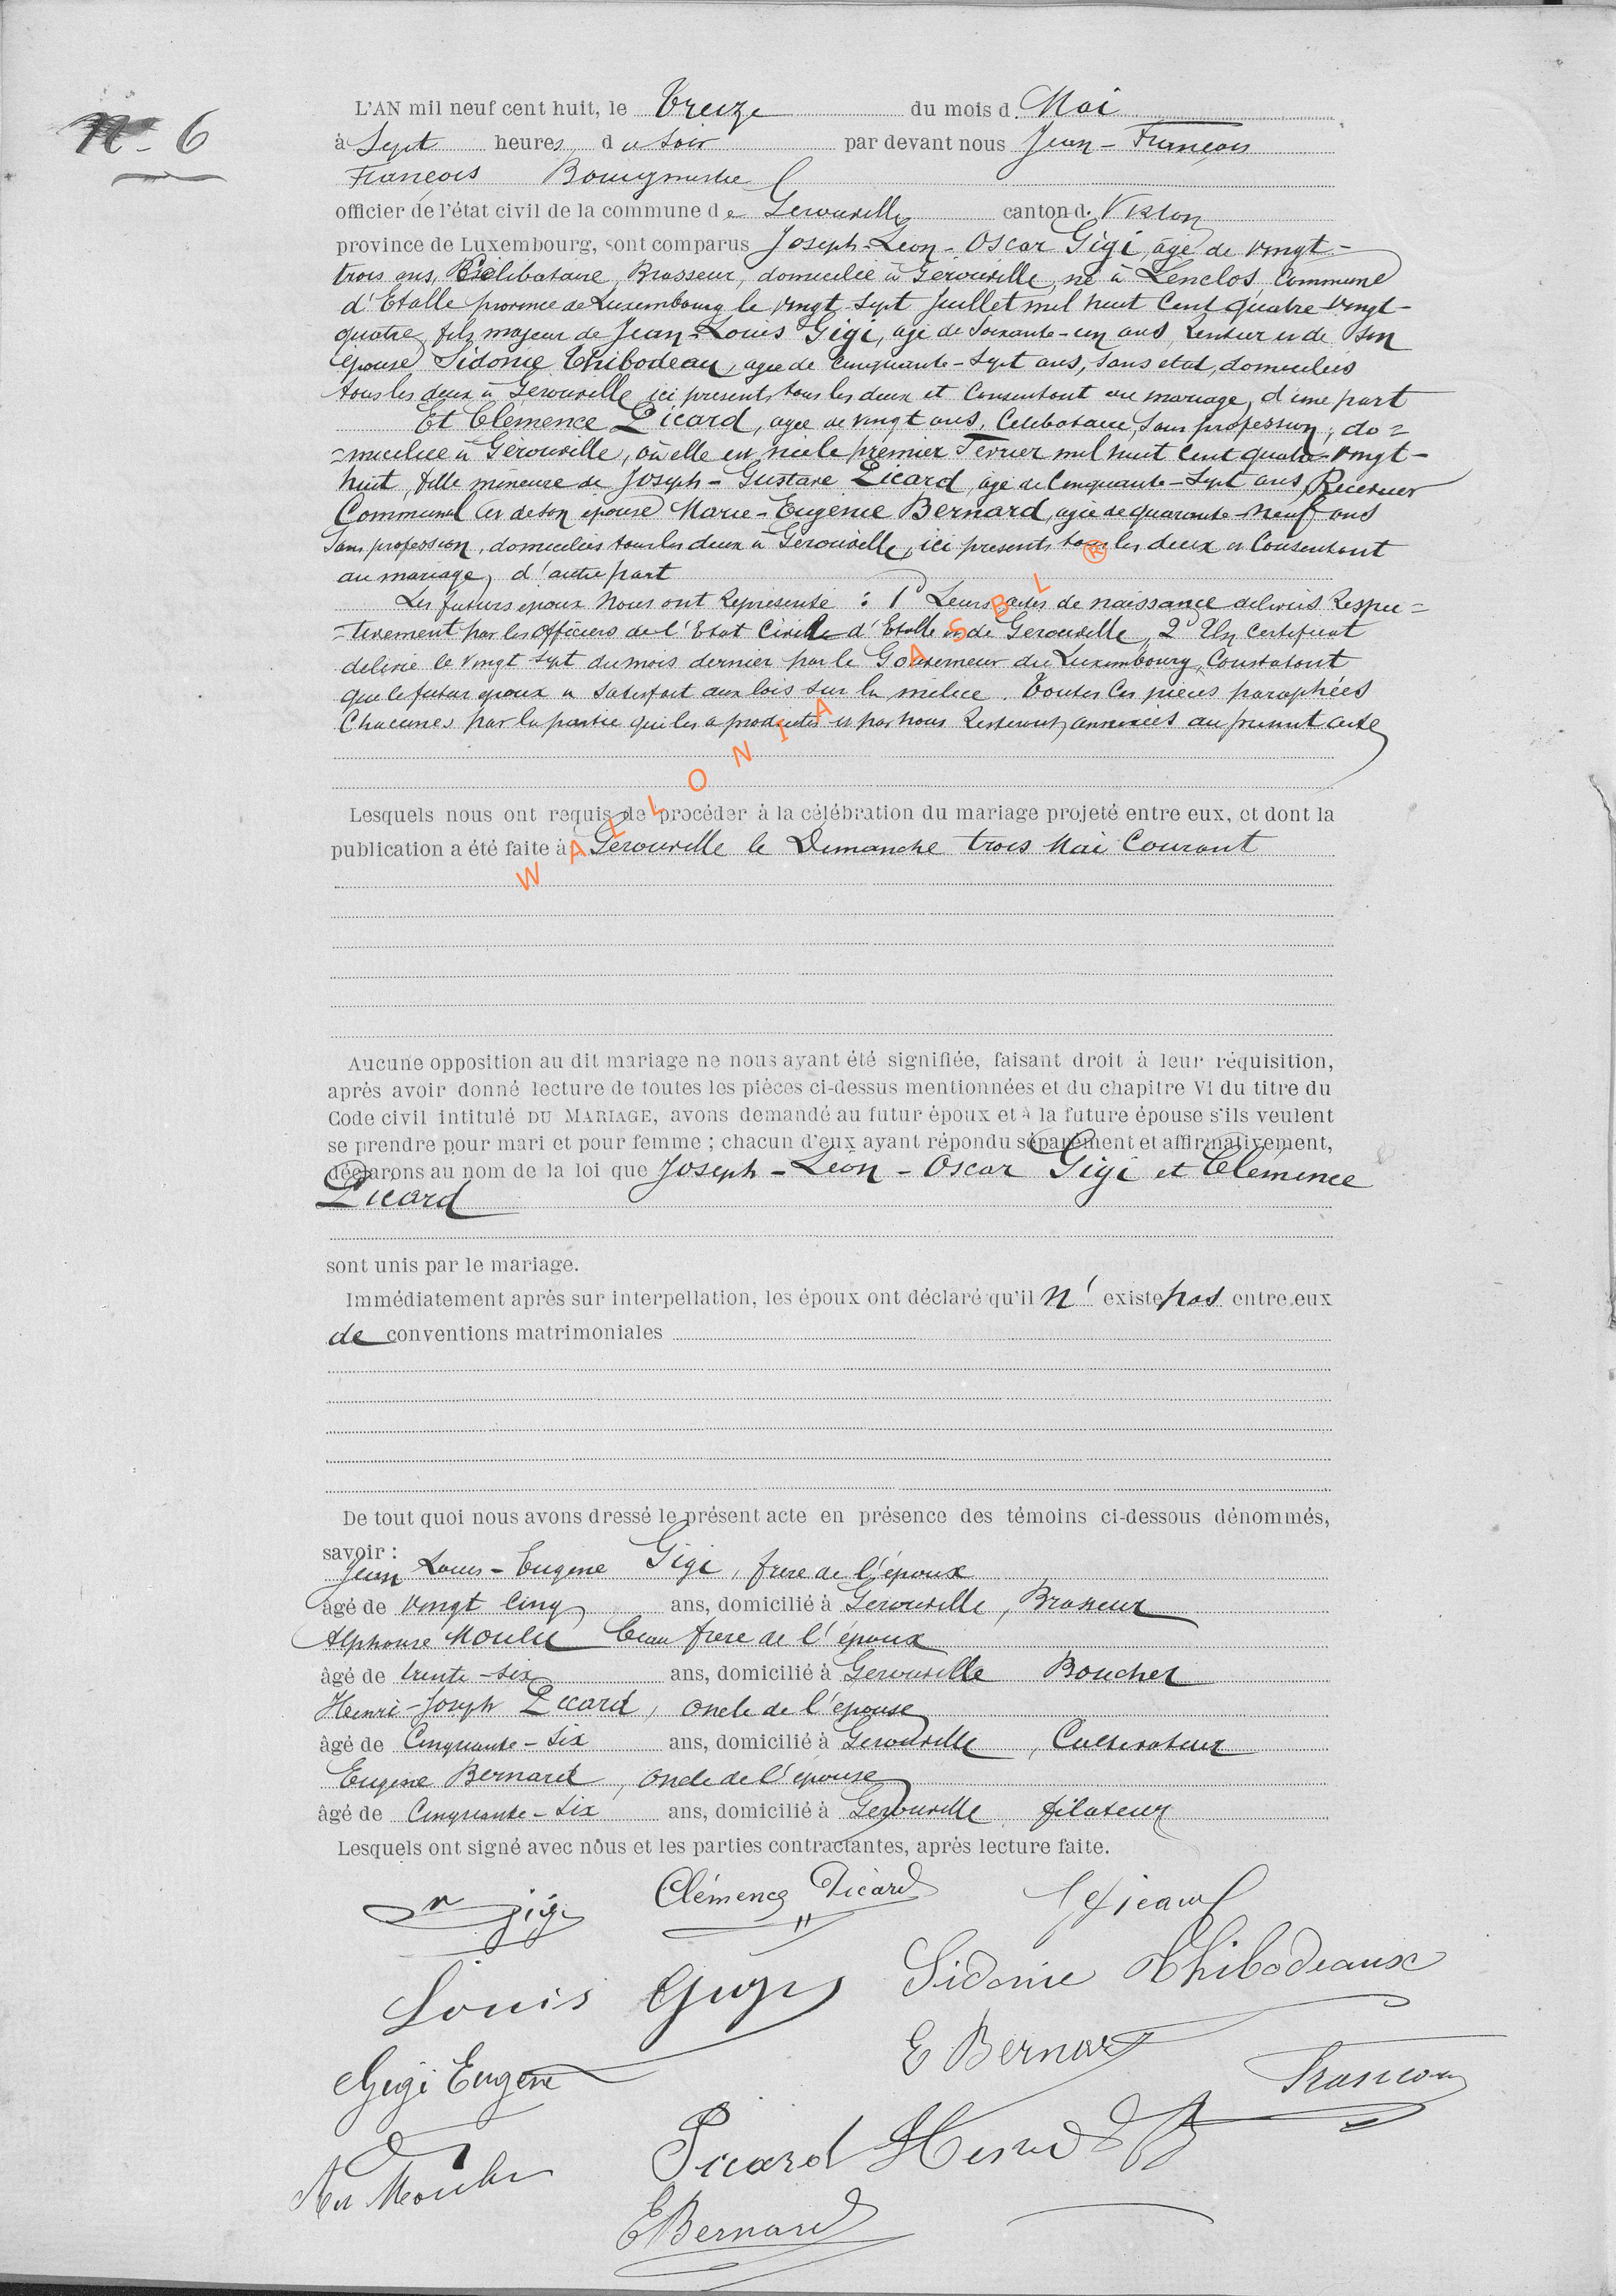 N° 6
L'AN mil neuf cent huit, le Treize du mois d. Mai
à Sept heures du Soir par devant nous Jean - François
François Bourgmestre
officier de l'état civil de la commune de Gerouville canton d. Virton
province de Luxembourg, sont comparus Joseph - Léon - Oscar Gigi, âgé de vingt -
trois ans, Célibataire, Brasseur, domicilié à Gérouville, né à Lenclos Commune
d'Etalle province de Luxembourg le vingt sept Juillet mil huit Cent quatre vingt -
quatre, fils majeur de Jean-Louis Gigi, agé de Soixante - un ans Rentier et de Son
épouse Sidonie Thibodeau, agée de cinquante - sept ans, sans etat, domiciliés
tous les deux à Gerouville ici présents tous les deux et Consentant au mariage, d'une part
Et Clemence Picard, agée de vingt ans, Celibataire, Sans profession, do =
= miciliée à Gérouville, où elle est née le premier Fevrier mil huit Cent quatre-vingt -
huit, fille mineure de Joseph - Gustave Picard, agé de Cinquante - Sept ans, Receveur
Communal et de son epouse Marie - Eugénie Bernard, agée de quarante-neuf ans
Sans profession, domiciliés tous les deux à Gerouville, ici présents tous les deux et Consentant
au mariage, d'autre part
Les futurs époux Nous ont Représenté : 1° Leurs actes de naissance délivrés Respec =
= tivement par les Officiers de l'Etat Civil d'Etalle et de Gerouville, 2° Un Certificat
délivré le vingt sept du mois dernier par le Gouverneur du Luxembourg, Constatant
que le futur epoux a Satisfait aux lois sur la milice. Toutes les pièces paraphées
Chacunes par la partie qui les a produites et par nous Resteront annexées au présent acte
Lesquels nous ont requis de procéder à la célébration du mariage projeté entre eux, et dont la
publication a été faite à Gerouville le Dimanche trois Mai Courant
WALLONIA ASBL ®
Aucune opposition au dit mariage ne nous ayant été signifiée, faisant droit à leur réquisition,
après avoir donné lecture de toutes les pièces ci-dessus mentionnées et du chapitre VI du titre du
Code civil intitulé DU MARIAGE, avons demandé au futur époux et à la future épouse s'ils veulent
se prendre pour mari et pour femme ; chacun d'eux ayant répondu séparément et affirmativement,
déclarons au nom de la loi que Joseph - Léon - Oscar Gigi et Clémence
Picard
sont unis par le mariage.
Immédiatement après sur interpellation, les époux ont déclaré qu'il n' existe pas entre eux
de conventions matrimoniales
De tout quoi nous avons dressé le présent acte en présence des témoins ci-dessous dénommés,
savoir :
Jean Louis - Eugene Gigi, frere de l'époux
âgé de vingt Cinq ans, domicilié à Gerouville, Brasseur
Alphonse Moulu beau frere de l'époux
âgé de trente - six ans, domicilié à Gerouville Boucher
Henri - Joseph Picard, oncle de l'epouse
âgé de Cinquante - Six ans, domicilié à Gerouville, Cultivateur
Eugene Bernard, oncle de l'épouse
âgé de Cinquante - Six ans, domicilié à Gerouville filateur
Lesquels ont signé avec nous et les parties contractantes, après lecture faite.
gigi Clémence Picard
Louis Gigi Sidonie Thibodeaux
Gigi Eugène E Bernard François
Picard Henri
E Bernard